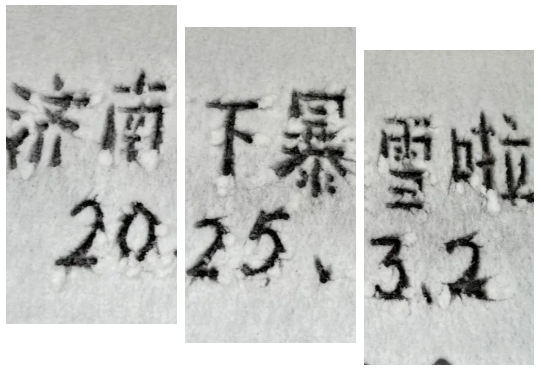 济南下暴雪啦
2025.3.2